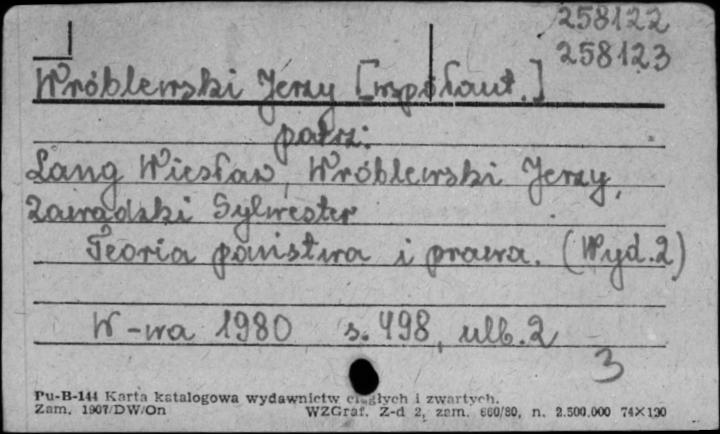 258122
258123
Wróblewski Jerzy [współaut.]
patrz:
Lang Wiesław, Wróblewski Jerzy,
Zawadzki Sylwester
Teoria państwa i prawa. (Wyd. 2)
W-wa 1980 s. 498, ulb. 2
3
Pu-B-144 Karta katalogowa wydawnictw ciągłych i zwartych.
Zam. 1907/DW/On WZGraf. Z-d 2, zam. 660/80, n. 2.500.000 74×120